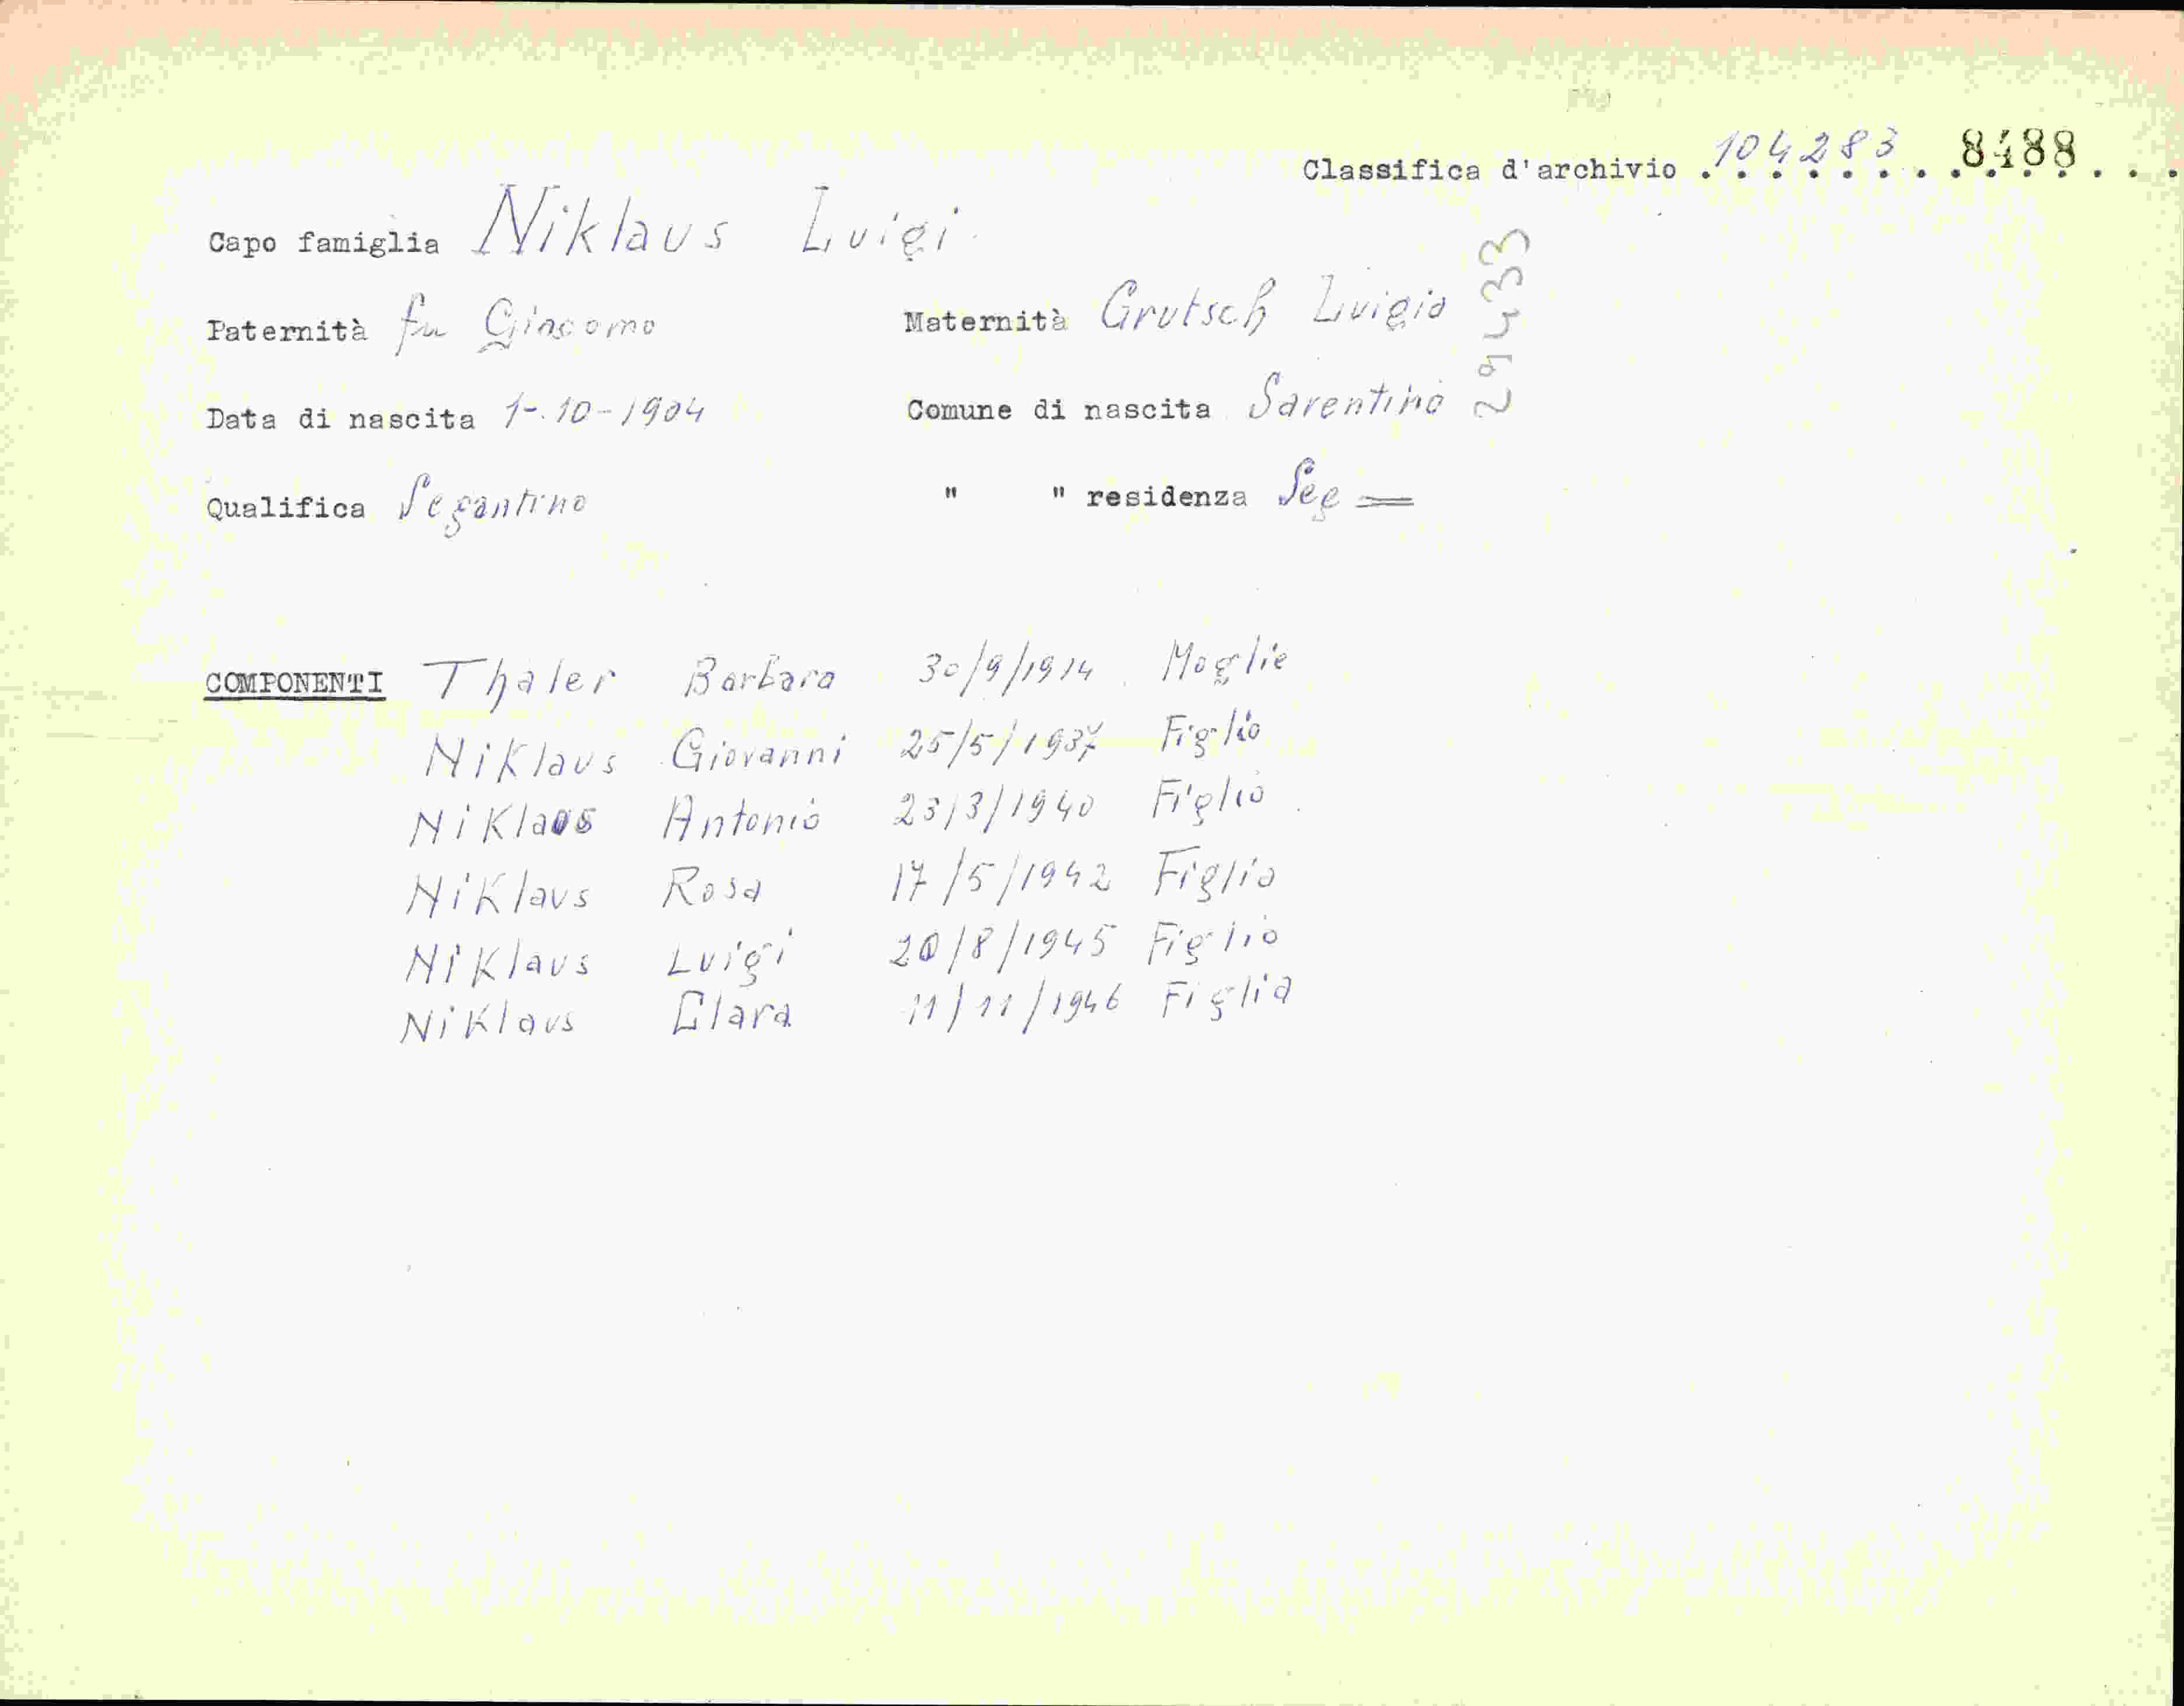 Classifica d'archivio 104283 8488
Capo famiglia Niklaus Luigi
Paternità fu Giacomo Maternità Grutsch Luigia
Data di nascita 1-10-1904 Comune di nascita Sarentino
Qualifica Segantino " " residenza
COMPONENTI Thaler Barbara 30/9/1914 Moglie
Niklaus Giovanni 25/5/1937 Figlio
Niklaus Antonio 23/3/1940 Figlio
Niklaus Rosa 17/5/1942 Figlia
Niklaus Luigi 20/8/1945 Figlio
Niklaus Clara 11/11/1946 Figlia